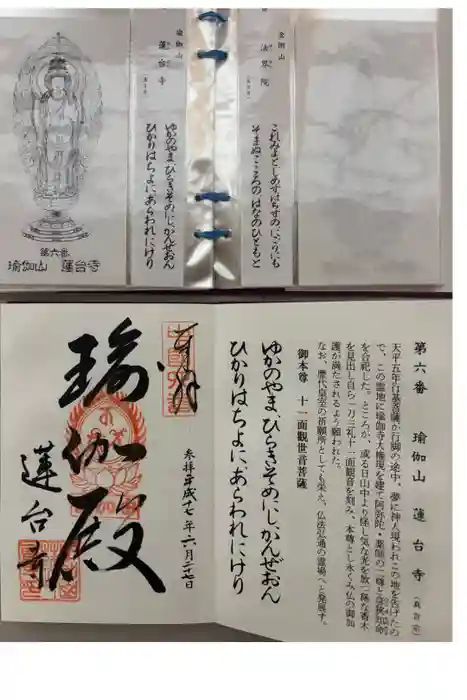 第六番
瑜伽山 蓮台寺
瑜伽山
蓮台寺
ゆかのやま、ひらきそめにし、かんぜおん
ひかりはちよに、あらわれにけり
金剛山
法界院
これみよとしめすはちすのにごりにも
そまぬこころの はなのひともと
奉拝
瑜伽殿
蓮台寺
参拝平成十七年六月二十七日
ゆかのやま、ひらきそめにし、かんぜおん
ひかりはちよに、あらわれにけり
第六番 瑜伽山 蓮台寺 (真言宗)
天平五年行基菩薩が行脚の途中、夢に神人現われこの地を告げたの
で、この霊地に瑜伽寺大権現を建て阿弥陀・薬師の二尊と
を合祀した。ところが、或る日山中より怪し気な光を放つ稀な香木
を見出し自ら一刀三礼十一面観音を刻み、本尊とし永くみ仏の御加
護が満たされるよう願われた。
なお、歴代皇室の祈願所としても栄え、仏法弘通の霊場へと発展す。
御本尊 十一面観世音菩薩